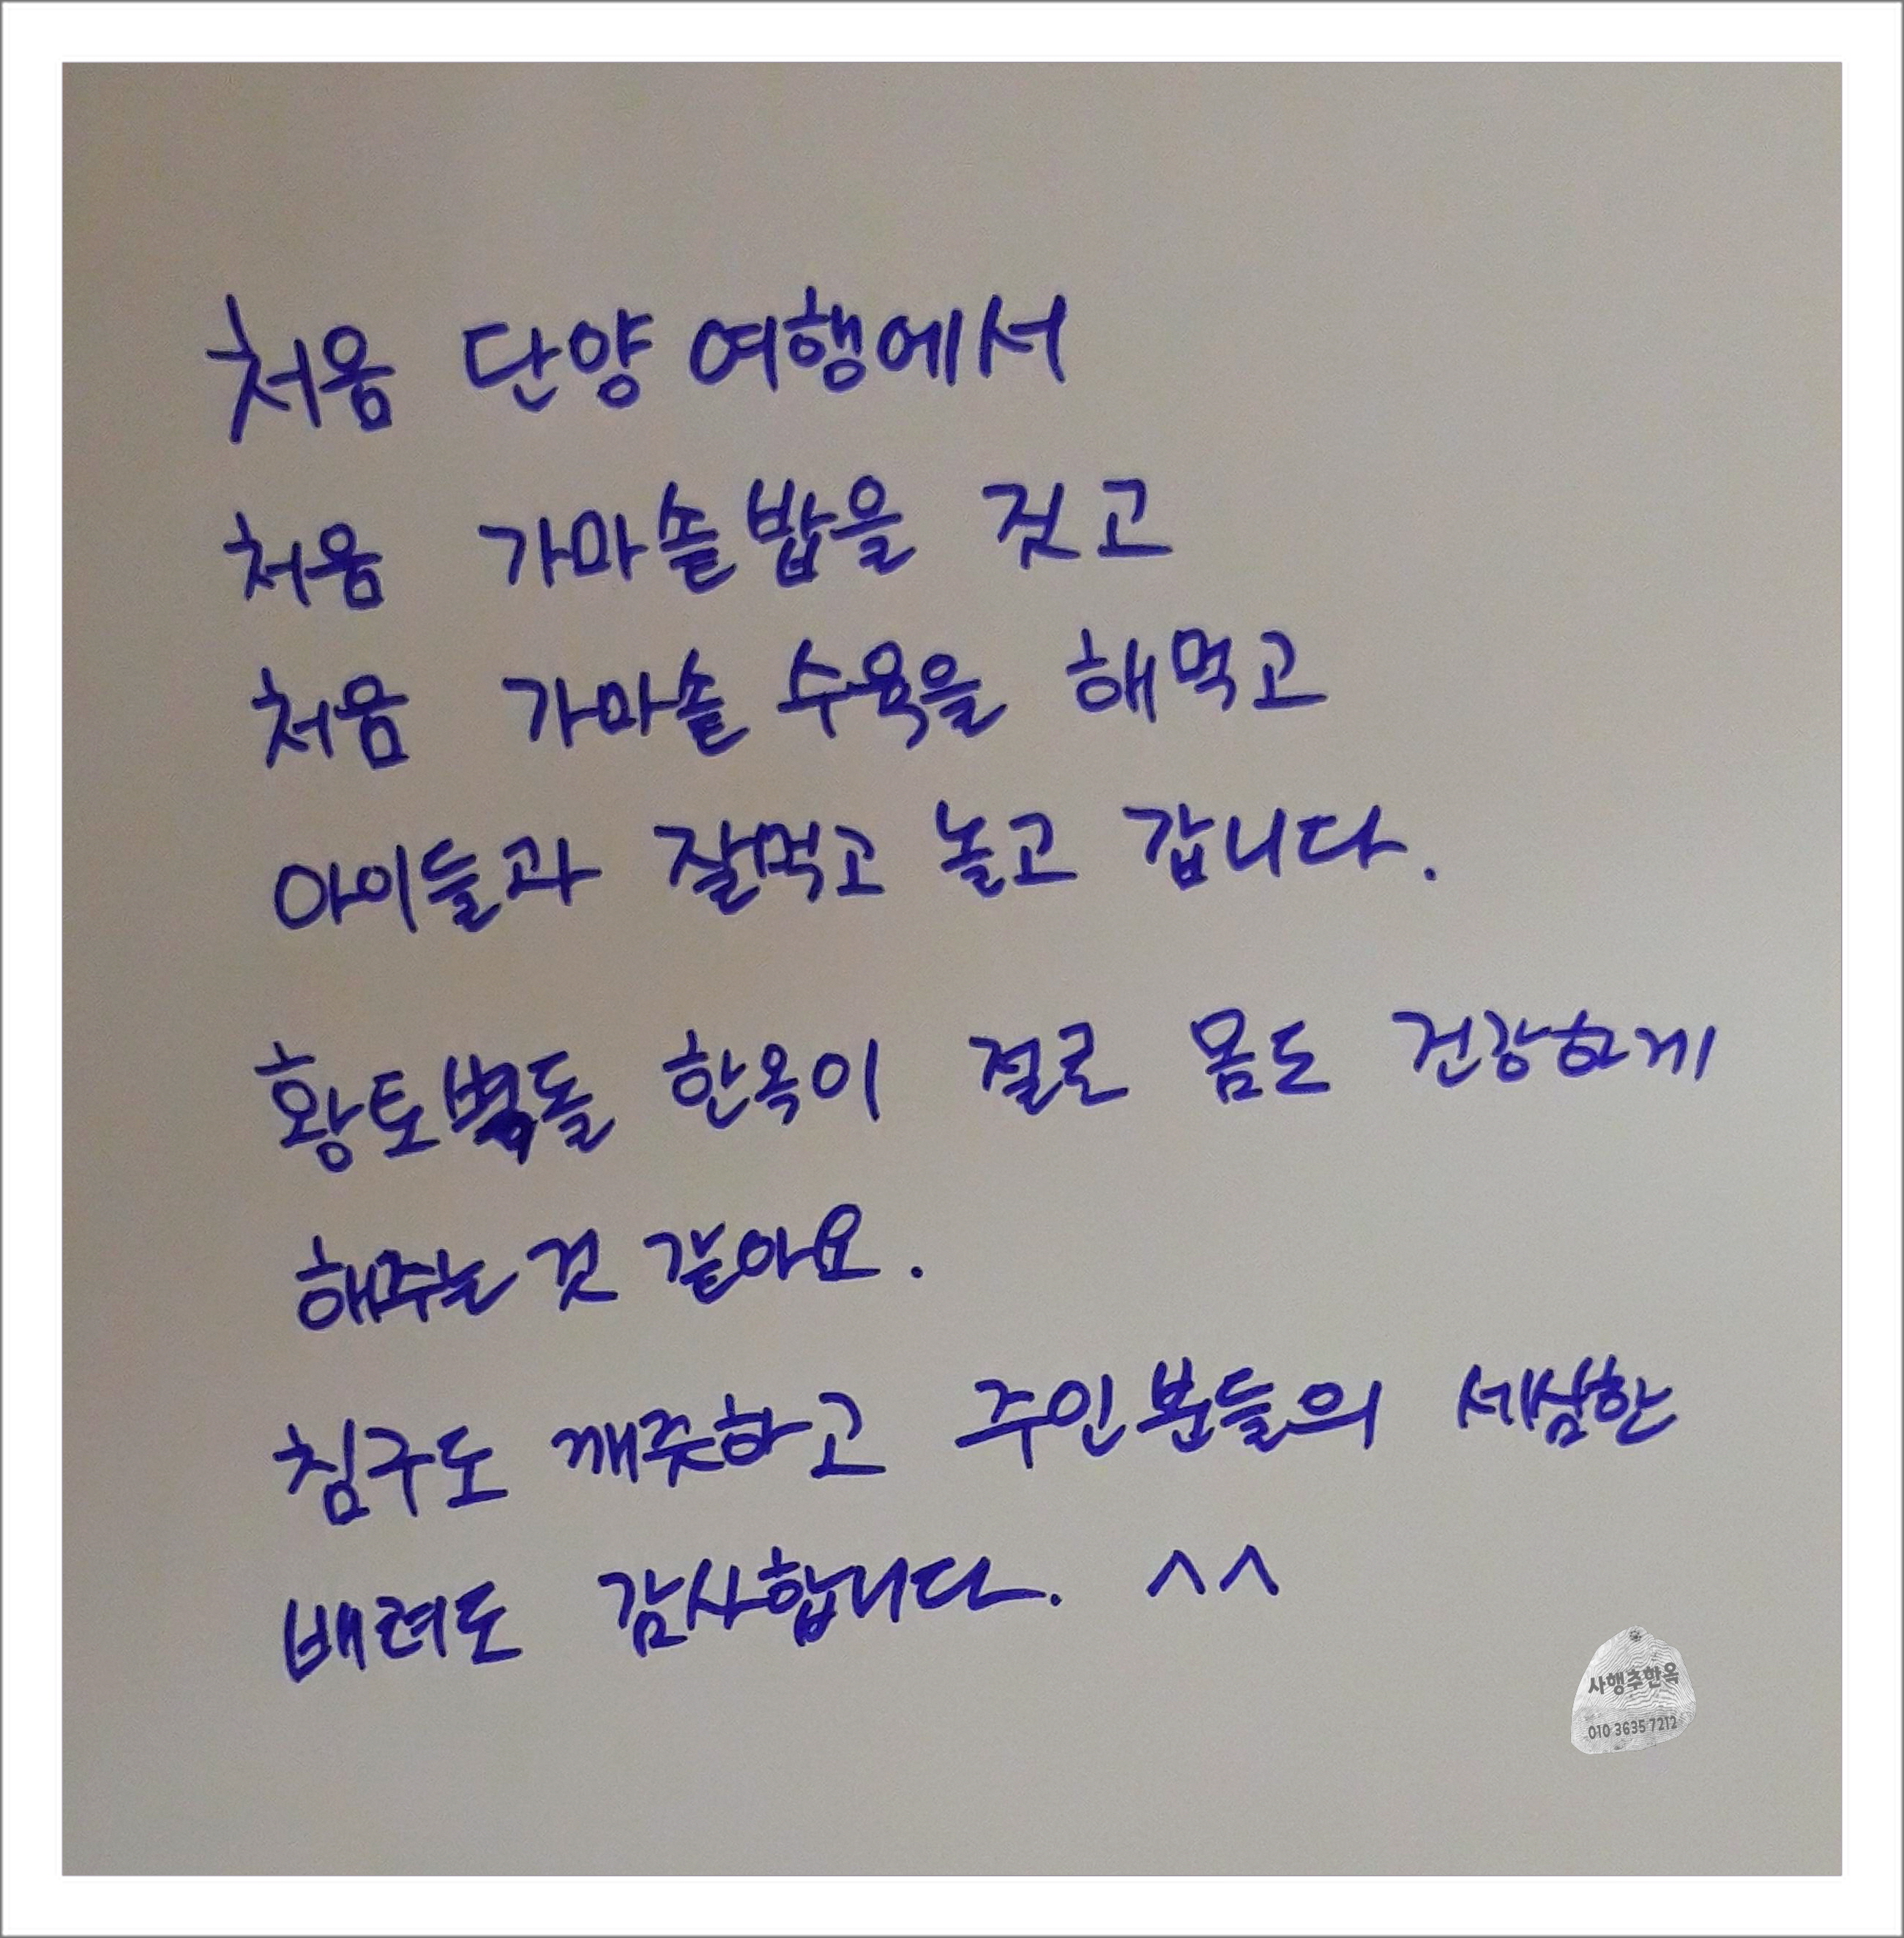 처음 단양 여행에서
처음 가마솥밥을 짓고
처음 가마솥 수육을 해먹고
아이들과 잘먹고 놀고 갑니다.
황토벽돌 한옥이 절로 몸도 건강하게
해주는 것 같아요.
침구도 깨끗하고 주인분들의 세심한
배려도 감사합니다. ^^
사행추한옥
010 3635 7212